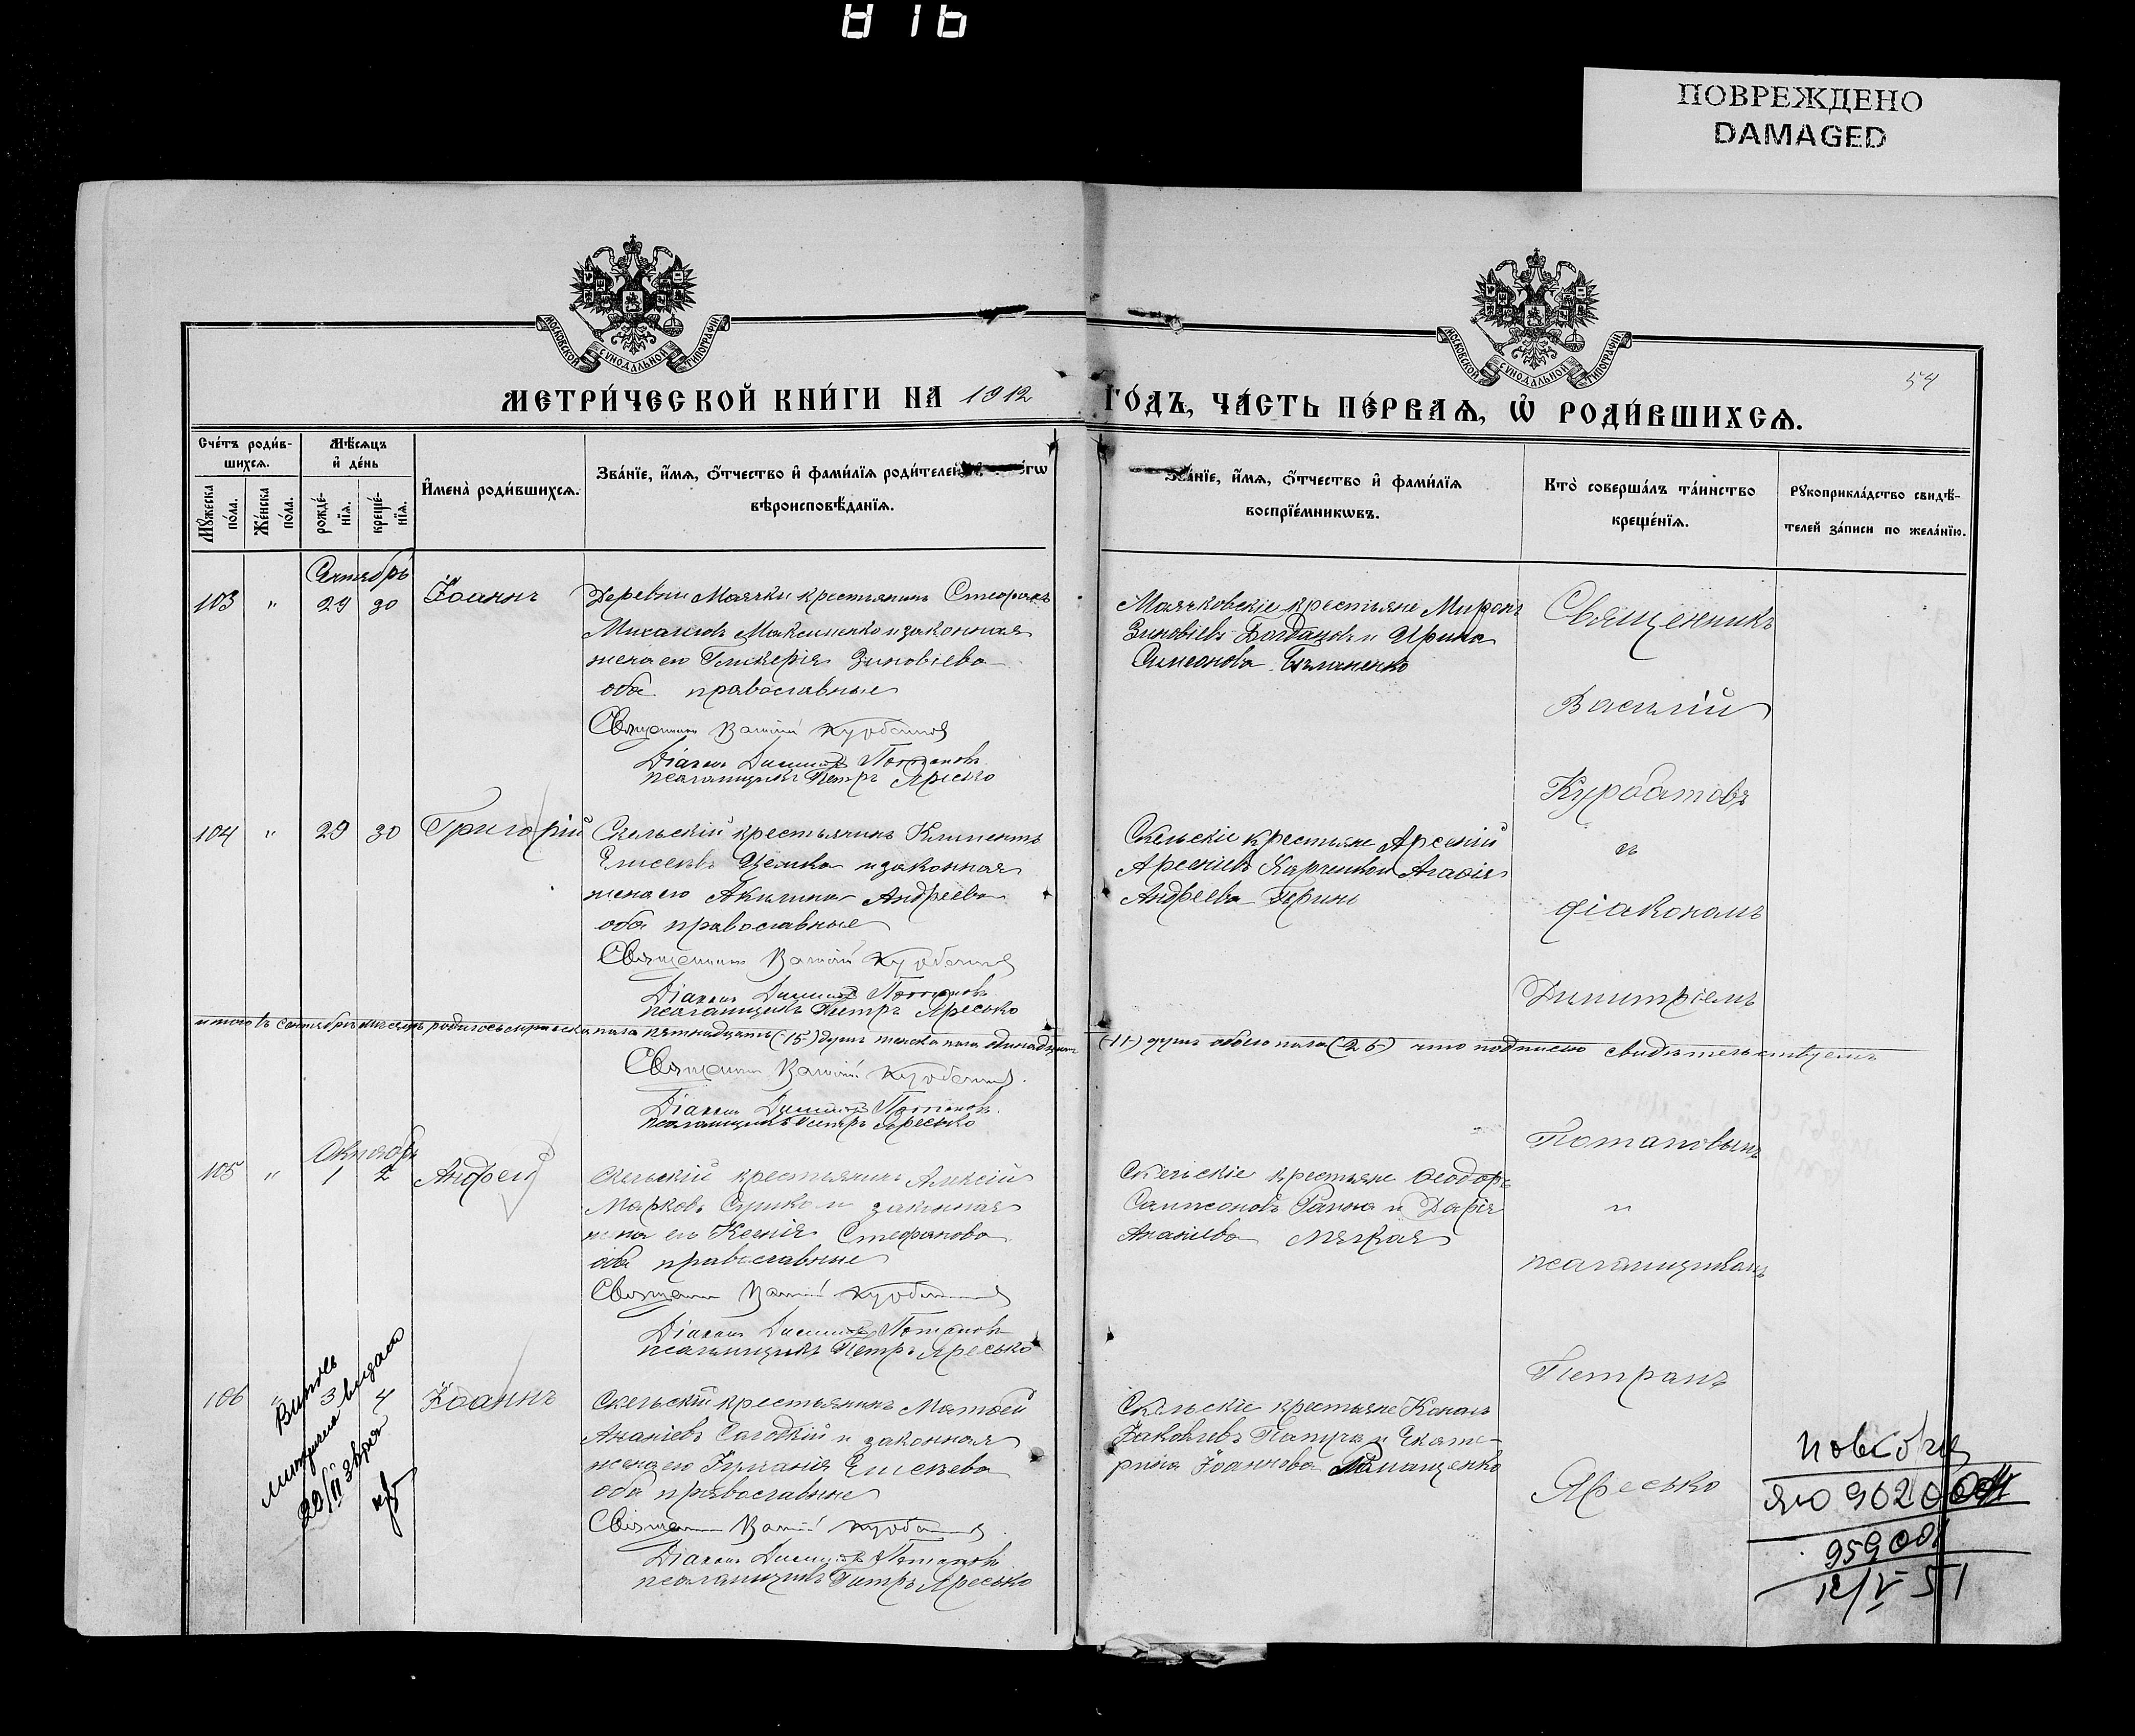 816
ПОВРЕЖДЕНО
DAMAGED
МОСКОВСКОЙ СѴНОДАЛЬНОЙ ТИПОГРАФІИ
МОСКОВСКОЙ СѴНОДАЛЬНОЙ ТИПОГРАФІИ
54
МЕТРИ́ЧЕСКОЙ КНИ́ГИ НА 1912 ГО́ДЪ, ЧА́СТЬ ПЕ́РВАѦ, Ѡ҆ РОДИ́ВШИХСѦ.
Сче́тъ роди́в-
шихсѧ.
Мꙋ́жеска по́ла.
Же́нска по́ла.
Мѣ́сѧцъ
и҆ де́нь
рожде́-
нїѧ.
креще́-
нїѧ.
И҆мена̀ роди́вшихсѧ.
Зва́нїе, и҆́мѧ, ѻ҆́тчество и҆ фами́лїѧ роди́телей
вѣроисповѣ́данїѧ.
Зва́нїе, и҆́мѧ, ѻ҆́тчество и҆ фами́лїѧ
воспрїе́мникѡвъ.
Кто̀ соверша́лъ та́инство
креще́нїѧ.
Рꙋкоприкла́дство свидѣ́-
телей за́писи по жела́нїю.
Сентябрь
103 " 29 30 Іоаннъ
Деревни Маячки крестьянинъ Стефанъ
Михаиловъ Максименко и законная
жена его Гликерія Зиновіева
оба православные
Священникъ Василій Курбатовъ
Діаконъ Димитрій Потаповъ
Псаломщикъ Петръ Яресько
Маячковскіе крестьяне Миронъ
Зиновіевъ Богдановъ и Ирина
Симеонова
Священникъ
Василій
Курбатовъ
съ
діакономъ
Димитріемъ
Потаповымъ
и
псаломщикомъ
Петромъ
Яресько
104 " 29 30 Григорій
Скельскій крестьянинъ Климентъ
Елисеевъ и законная
жена его Акилина Андреева
оба православные
Священникъ Василій Курбатовъ
Діаконъ Димитрій Потаповъ
Псаломщикъ Петръ Яресько
Скельскіе крестьяне Арсеній
Арсеніевъ Харченко и Агафія
Андреева
итого въ сентябрѣ мѣсяцѣ родилось мужеска пола пятнадцать (-15-) душъ женска пола одинадцать (-11-) душъ обоего пола (-26-) что подписью свидѣтельствуемъ
Священникъ Василій Курбатовъ.
Діаконъ Димитрій Потаповъ.
Псаломщикъ Петръ Яресько
Октябрь
105 " 1 2 Андрей
Скельскій крестьянинъ Алексій
Марковъ Сушко и законная
жена его Ксенія Стефанова
оба православные
Священникъ Василій Курбатовъ
Діаконъ Димитрій Потаповъ
Псаломщикъ Петръ Яресько
Скельскіе крестьяне Ѳеодоръ
Сампсоновъ и Дарія
Ананіева
106 " 3 4 Іоаннъ
Скельскій крестьянинъ Матѳей
Ананіевъ и законная
жена его Іуліанія Елисеева
оба православные
Священникъ Василій Курбатовъ
Діаконъ Димитрій Потаповъ
Псаломщикъ Петръ Яресько
Скельскіе крестьяне Кононъ
Іаковлевъ и Екате-
рина Іоаннова Романченко